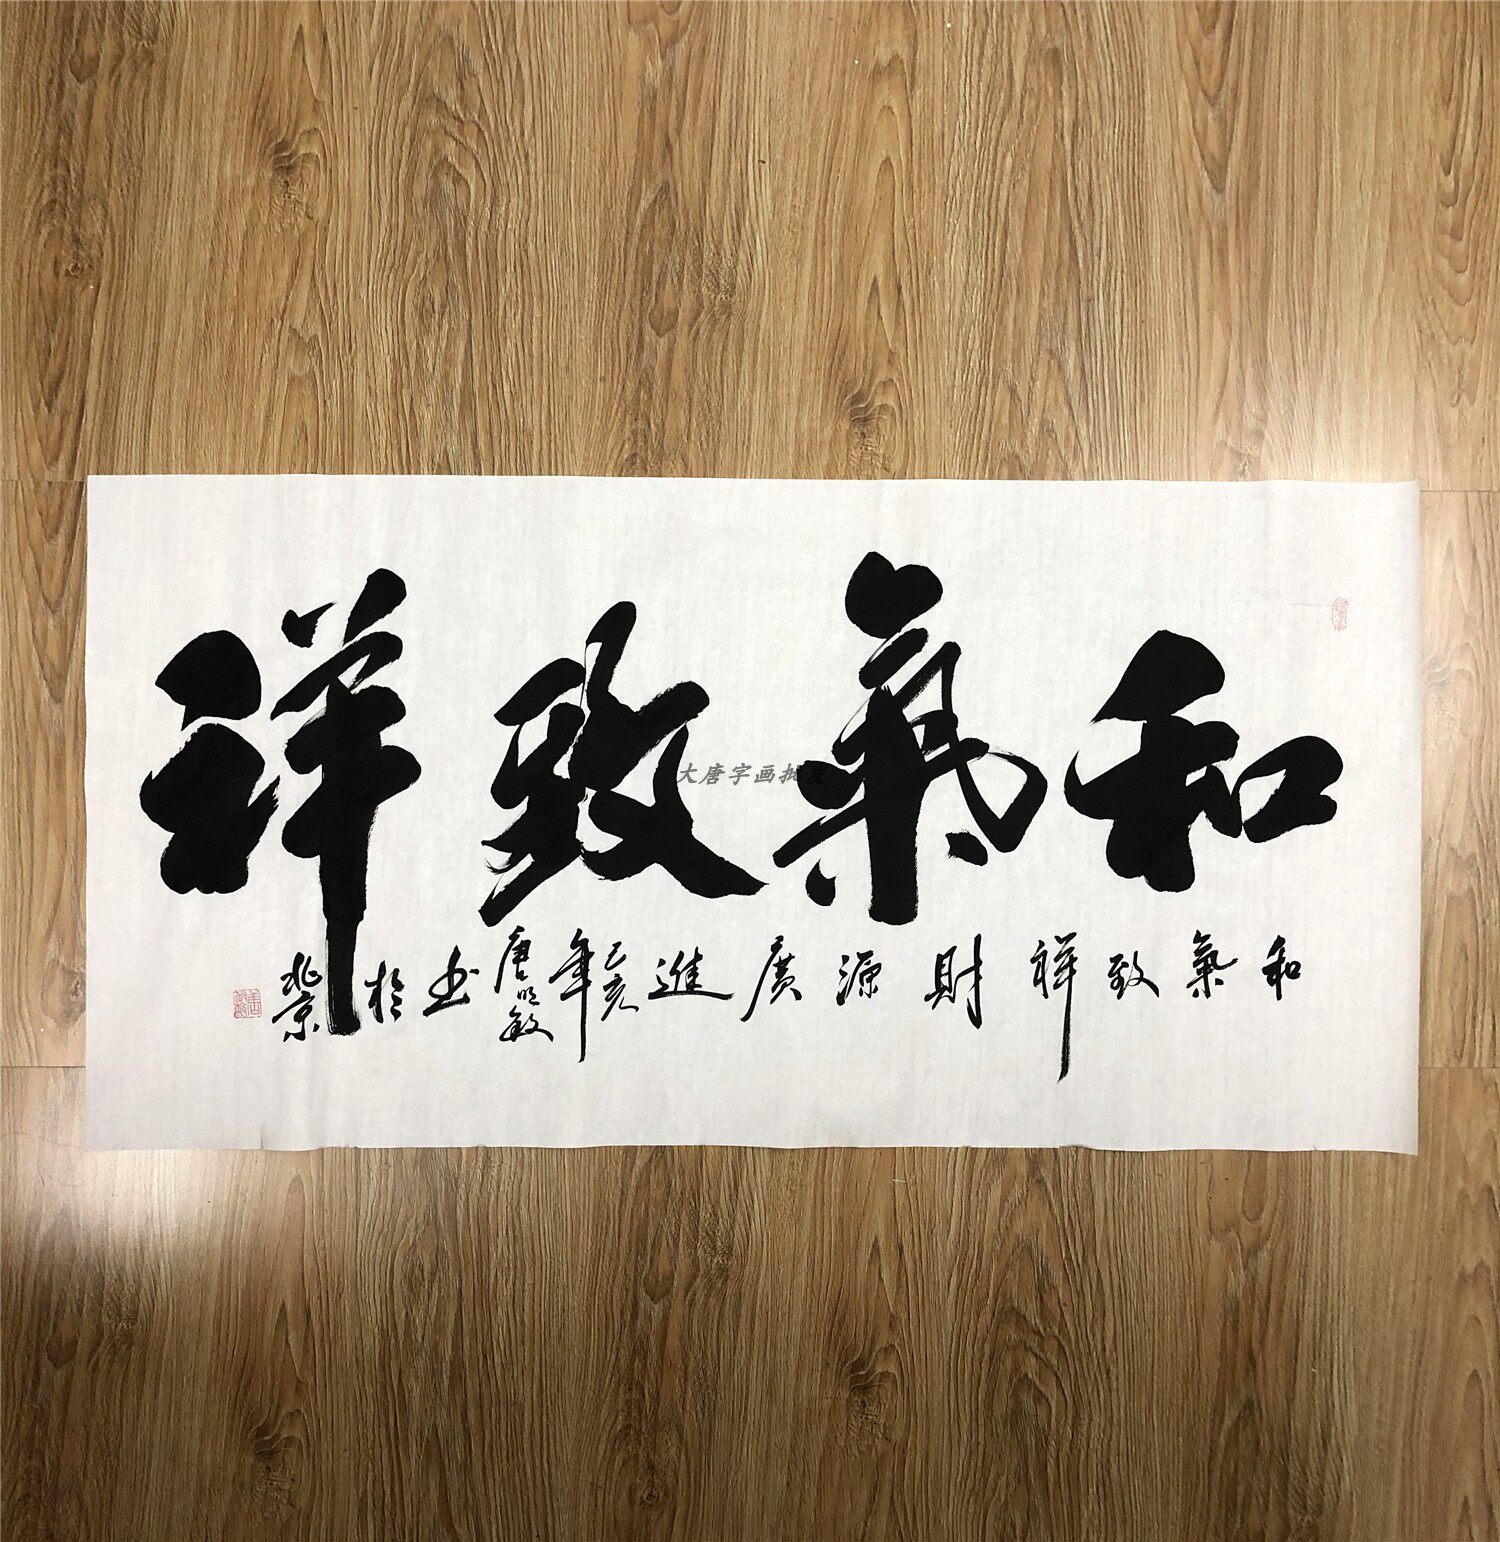 和氣致祥
和氣致祥財源廣進己亥年唐明敏书於北京
大唐字画批发